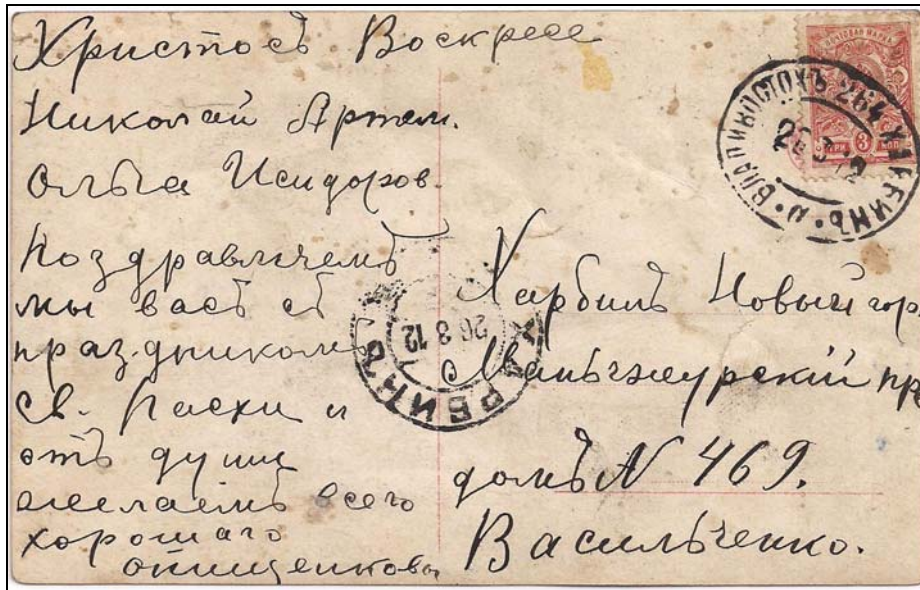 Христосъ Воскресе
Николай Артем.
Ольга Исидоров.
Поздравляемъ
мы васъ съ
праздникомъ
Св. Пасхи и
отъ души
желаемъ всего
хорошаго
Онищенковы
ПОЧТОВАЯ МАРКА
ТРИ 3 КОП
ВЛАДИВОСТОКЪ 264 ХАРБИНЪ
26 3 12
ХАРБИНЪ
26 3 12
Харбинъ Новый гор.
Маньчжурскій пр
домъ N 469.
Васильченко.